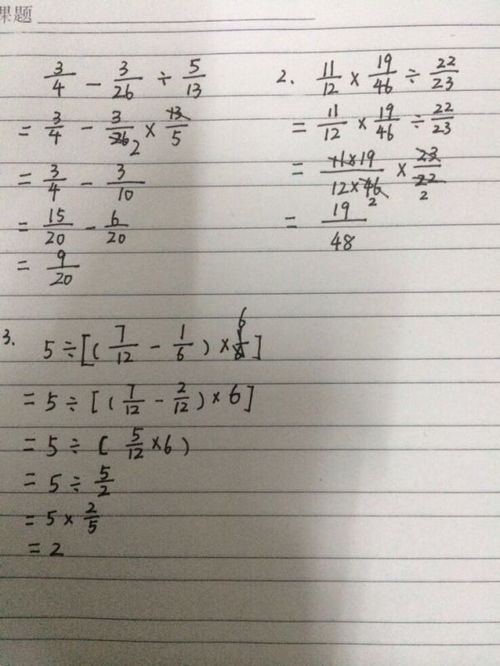 课题
3/4 - 3/26 ÷ 5/13
= 3/4 - 3/26 2 × 13/5
= 3/4 - 3/10
= 15/20 - 6/20
= 9/20
2. 11/12 × 19/46 ÷ 22/23
= 11/12 × 19/46 ÷ 22/23
= 11×19/12×46 2 × 23/22 2
= 19/48
3. 5÷[(7/12 - 1/6) × 6]
= 5÷[(7/12 - 2/12) × 6]
= 5÷(5/12 × 6)
= 5÷5/2
= 5 × 2/5
= 2